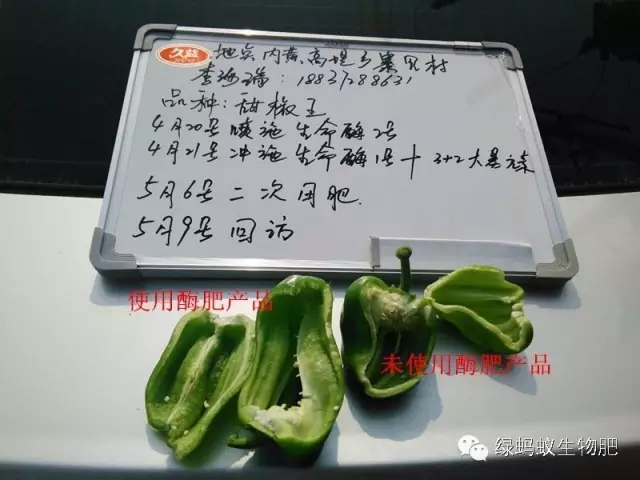 久益
地点内黄高堤乡寨里村
李海瑞：18837288631
品种：甜椒王
4月20号喷施生命酶2号
4月21号冲施生命酶1号十3+2大量元素
5月6号二次用肥.
5月9号回访
使用酶肥产品
未使用酶肥产品
绿蚂蚁生物肥